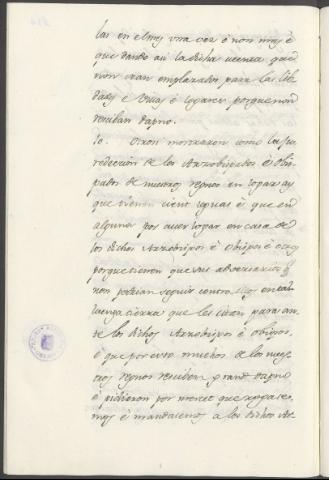 las en el mes una vez e non mas e
que dando asi la dicha licencia que
non sean emplazados para las Cib
dades e Villas e logares porque non
resciban dapno.
10. Otrosi mostraron como la ju
rediccion de los Arzobispados e Obis
pados de nuestros regnos en logares ay
que tienen cient leguas e que en
algunos por aver logar en casa de
los dichos Arzobispos e Obispos e otros
porque tienen que sus adversarios
non podrian seguir contra ellos en tan
luenga tierra que les citan para an
te los dichos Arzobispos e Obispos,
e que por esto muchos de los nues
tros regnos resciben grand dapno
e pidieron por merced que rogase
mos e mandasemos a los dichos Ar